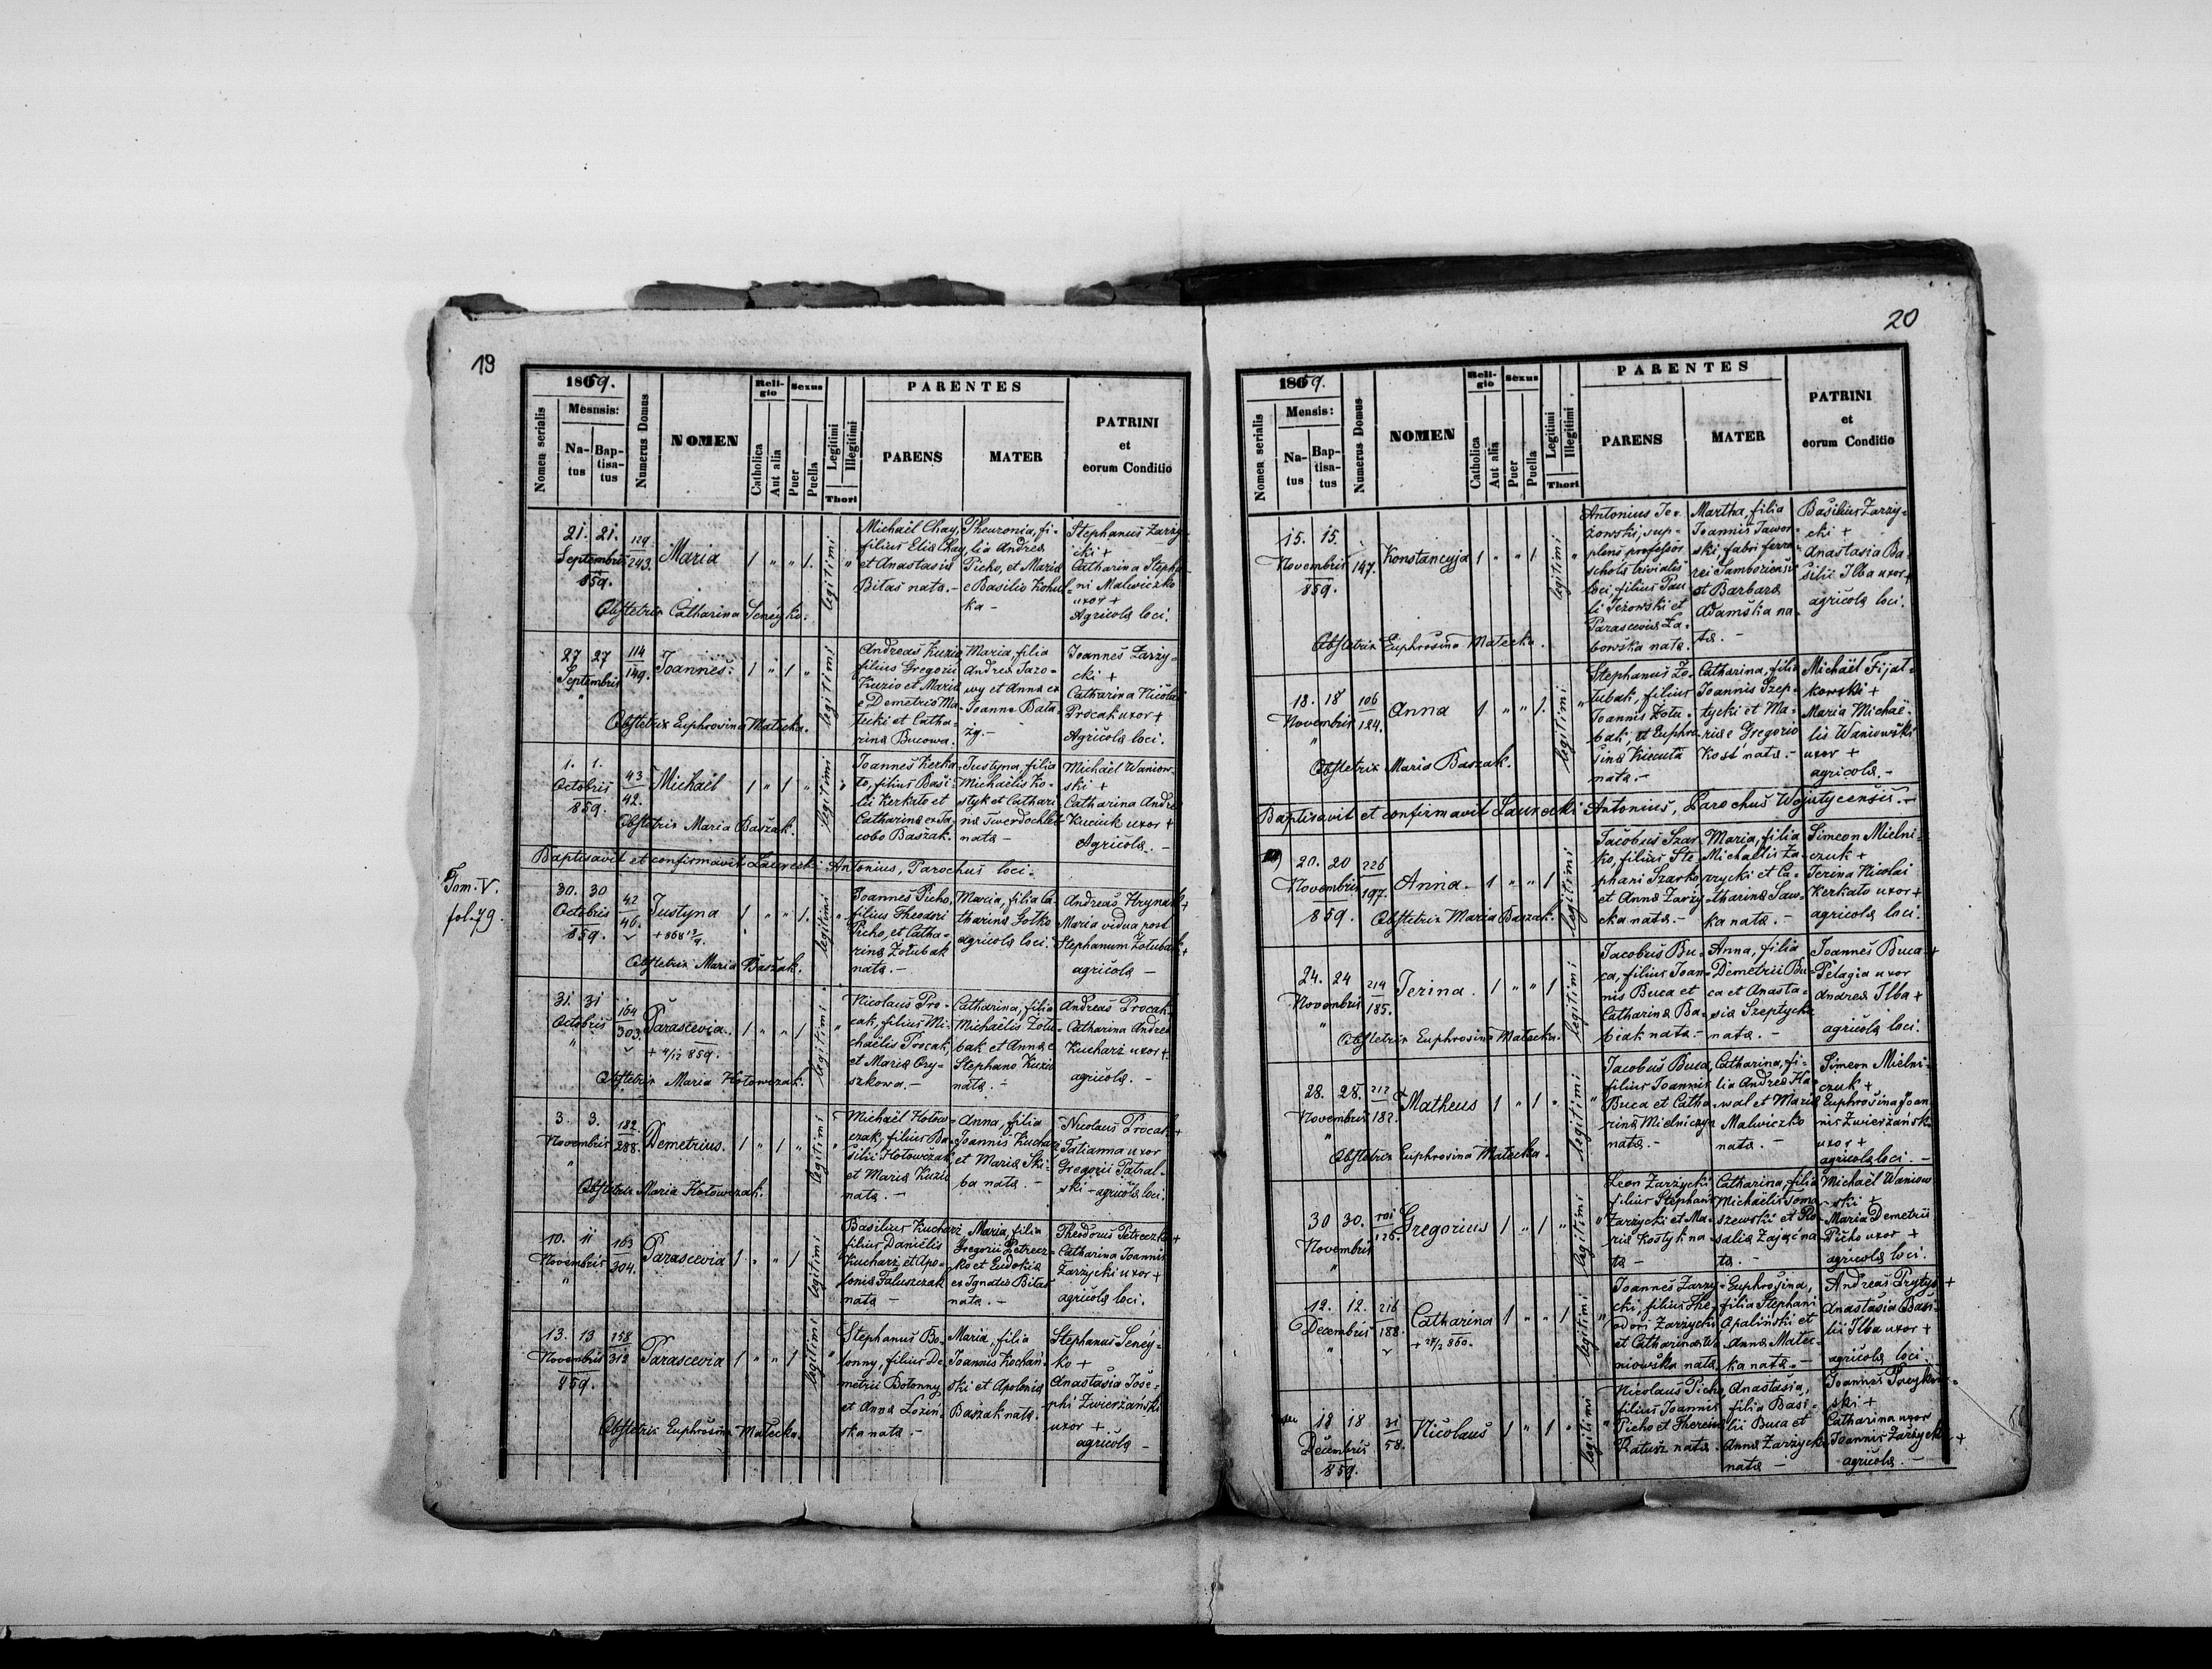 19
1859.
Mesnsis:
Nomen serialis
Na-
tus
Bap-
tisa-
tus
Numerus Domus
NOMEN
Reli-
gio
Catholica
Aut alia
Sexus
Puer
Puella
Legitimi
Illegitimi
Thori
PARENTES
PARENS
MATER
PATRINI
et
eorum Conditio
21. 21.
Septembris
859.
129
243.
Maria
1 " " 1.
legitimi
Michaël Chay,
filius Eliæ Chay,
et Anastasiæ
Bilas nata. -
Pheuronia, fi-
lia Andreæ
Picho, et Mariæ
e Basilio Kohut-
ka -
Stephanus Zarzy-
cki +
Catharina Stepha-
ni Malwiczko
uxor +
Agricolæ loci.
Obstetrix Catharina Seneyko.
27 27
Septembris
"
114
149.
Joannes.
1 " 1 "
legitimi
Andreas Kuzio
filius Gregorii
Kuzio et Mariæ
e Demetrio Ma-
tecki et Catha-
rina Bucowa.
Maria, filia
Andreæ Jazo-
wy et Annæ ex
Joanne Bata-
zy. -
Joannes Zarzy-
cki +
Catharina Nicolai
Procak uxor +
Agricolæ loci.
Obstetrix Euphrosina Matecka.
1. 1.
Octobris
859.
43
42.
Michaël
1 " 1 "
legitimi
Joannes Kerka-
to, filius Basi-
lii Kerkato et
Catharinæ ex Ja-
cobo Baszak.
Justyna, filia
Michaëlis Ko-
styk et Cathari-
næ Twerdochleb
nata -
Michaël Waniow-
ski +
Catharina Andreæ
Kuciuk uxor +
Agricolæ. -
Obstetrix Maria Baszak.
Baptisavit et confirmavit Laurecki Antonius, Parochus loci.
Tom. V.
fol. 79.
30. 30
Octobris
859.
42
46.
Justyna
1 " " 1.
legitimi
Joannes Picho,
filius Theodori
Picho, et Catha-
rina Zołubak
nata. -
Maria, filia Ca-
tharinæ Gołko
agricolæ loci.
Andreas Hrynak +
Maria vidua post
Stephanum Zołubak +
agricolæ -
Obstetrix Maria Baszak.
31. 31
Octobris
"
164
303.
Parascevia.
+ 4/12 859.
1 " " 1
legitimi
Nicolaus Pro-
cak, filius Mi-
chaëlis Procak,
et Mariæ Ory-
szkowa. -
Catharina, filia
Michaëlis Zołu-
bak et Annæ e
Stephano Kuzio
nata. -
Andreas Procak
Catharina Andreæ
Kucharz uxor +
agricolæ. -
Obstetrix Maria Hołowczak.
3. 3.
Novembris
"
182
288.
Demetrius.
1 " 1 "
legitimi
Michaël Hołow-
czak, filius Ba-
silii Hołowczak,
et Mariæ Kuzio
nata. -
Anna, filia
Joannis Kucharz
et Mariæ Ski-
ba nata. -
Nicolaus Procak +
Tatianna uxor
Gregorii Patral-
ski - agricolæ loci.
Obstetrix Maria Hołowczak.
10. 11
Novembris
"
163
304.
Parascevia
1 " " 1
legitimi
Basilius Kucharz,
filius Daniëlis
Kucharz, et Apo-
lonia Faluszczak
nata -
Maria, filia
Gregorii Petrecz-
ko et Eudokia
ex Ignatio Bilas
nata. -
Theodorus Petreczko +
Catharina Joannis
Zarzycki uxor +
agricolæ loci.
13. 13
Novembris
859.
158
312
Parascevia
1 " " 1
legitimi
Stephanus Bo-
łonny, filius De-
metrii Bołonny
et Anna Łoziń-
ska nata -
Maria, filia
Joannis Kochań-
ski et Apolonia
Baszak nata.
Stephanus Seney-
ko +
Anastasia Jose-
phi Zwierzański
uxor +
agricolæ -
Obstetrix Euphrosina Matecka.
20
1859.
Mensis:
Nomen serialis
Na-
tus
Bap-
tisa-
tus
Numerus Domus
NOMEN
Reli-
gio
Catholica
Aut alia
Sexus
Puer
Puella
Legitimi
Illegitimi
Thori
PARENTES
PARENS
MATER
PATRINI
et
eorum Conditio
15. 15.
Novembris
859.
147.
Konstancyja
1 " " 1.
legitimi
Antonius Je-
żowski, sup-
plens professor
scholæ trivialis
loci, filius Pau-
li Jeżowski et
Parasceviæ Za-
borska nata.
Martha, filia
Joannis Jawor-
ski, fabri ferra-
rei Samboriensis
et Barbara
Adamska na-
ta. -
Basilius Zarzy-
cki +
Anastasia Ba-
silii Ilba uxor +
agricolæ loci.
Obstetrix Euphrosina Matecka.
18. 18
Novembris
"
106
124.
Anna
1 " " 1.
legitimi
Stephanus Zo-
łubak, filius
Joannis Zołu-
bak, et Euphro-
sina Kiecuta
nata. -
Catharina, filia
Joannis Szep-
tycki et Ma-
riæ e Gregorio
Kość nata. -
Michaël Fijał-
kowski +
Maria Michaë-
lis Waniowski
uxor +
agricolæ. -
Obstetrix Maria Baszak.
Baptisavit et confirmavit Laurecki Antonius, Parochus Wojutycensis. -
20. 20
Novembris
859.
226
197.
Anna.
1 " " 1
legitimi
Jacobus Szar-
ko, filius Ste-
phani Szarko
et Anna Zarzy-
cka nata. -
Maria, filia
Michaëlis Za-
rzycki et Ca-
tharina Saw-
ka nata. -
Simeon Mielni-
czuk +
Jerina Nicolai
Kerkato uxor +
agricolæ loci.
Obstetrix Maria Baszak.
24. 24
Novembris
"
214
185.
Jerina.
1 " " 1
legitimi
Jacobus Bu-
ca, filius Joan-
nis Buca et
Catharina Ba-
biak nata. -
Anna, filia
Demetrii Bu-
ca et Anasta-
sia Szeptycka
nata. -
Joannes Buca +
Pelagia uxor
Andreæ Ilba +
agricolæ loci.
Obstetrix Euphrosina Matecka.
28. 28.
Novembris
"
212
182.
Matheus
1 " 1 "
legitimi
Jacobus Buca,
filius Joannis
Buca et Catha-
rina Mielniczyn
nata. -
Catharina, fi-
lia Andreæ Ha-
wal et Mariæ
Malwiczko
nata. -
Simeon Mielni-
czuk +
Euphrosina Joan-
nis Zwierzański
uxor +
agricolæ loci. -
Obstetrix Euphrosina Matecka.
30 30.
Novembris
"
126.
Gregorius
1 " 1 "
legitimi
Leon Zarzycki
filius Stephani
Zarzycki et Ma-
ria Kostyk na-
ta -
Catharina, filia
Michaëlis Toma-
szewski et Ro-
salia Zając na-
ta. -
Michaël Waniow-
ski +
Maria Demetrii
Picho uxor +
agricolæ loci.
12. 12.
Decembris
"
216
188.
Catharina
1 " " 1
legitimi
Joannes Zarzy-
cki, filius The-
odori Zarzycki
et Catharina Wa-
niowska nata.
Euphrosina,
filia Stephani
Apaliński et
Anna Matec-
ka nata. -
Andreas Prytys +
Anastasia Basi-
lii Ilba uxor +
agricolæ loci.
18 18
Decembris
859.
31
58.
Nicolaus
1 " 1 "
legitimi
Nicolaus Picho,
filius Joannis
Picho et Theresia
Ratusz nata.
Anastasia,
filia Basi-
lii Buca et
Anna Zarzycka
nata -
Joannes
ski +
Catharina uxor
Joannis Zarzycki +
agricolæ. -